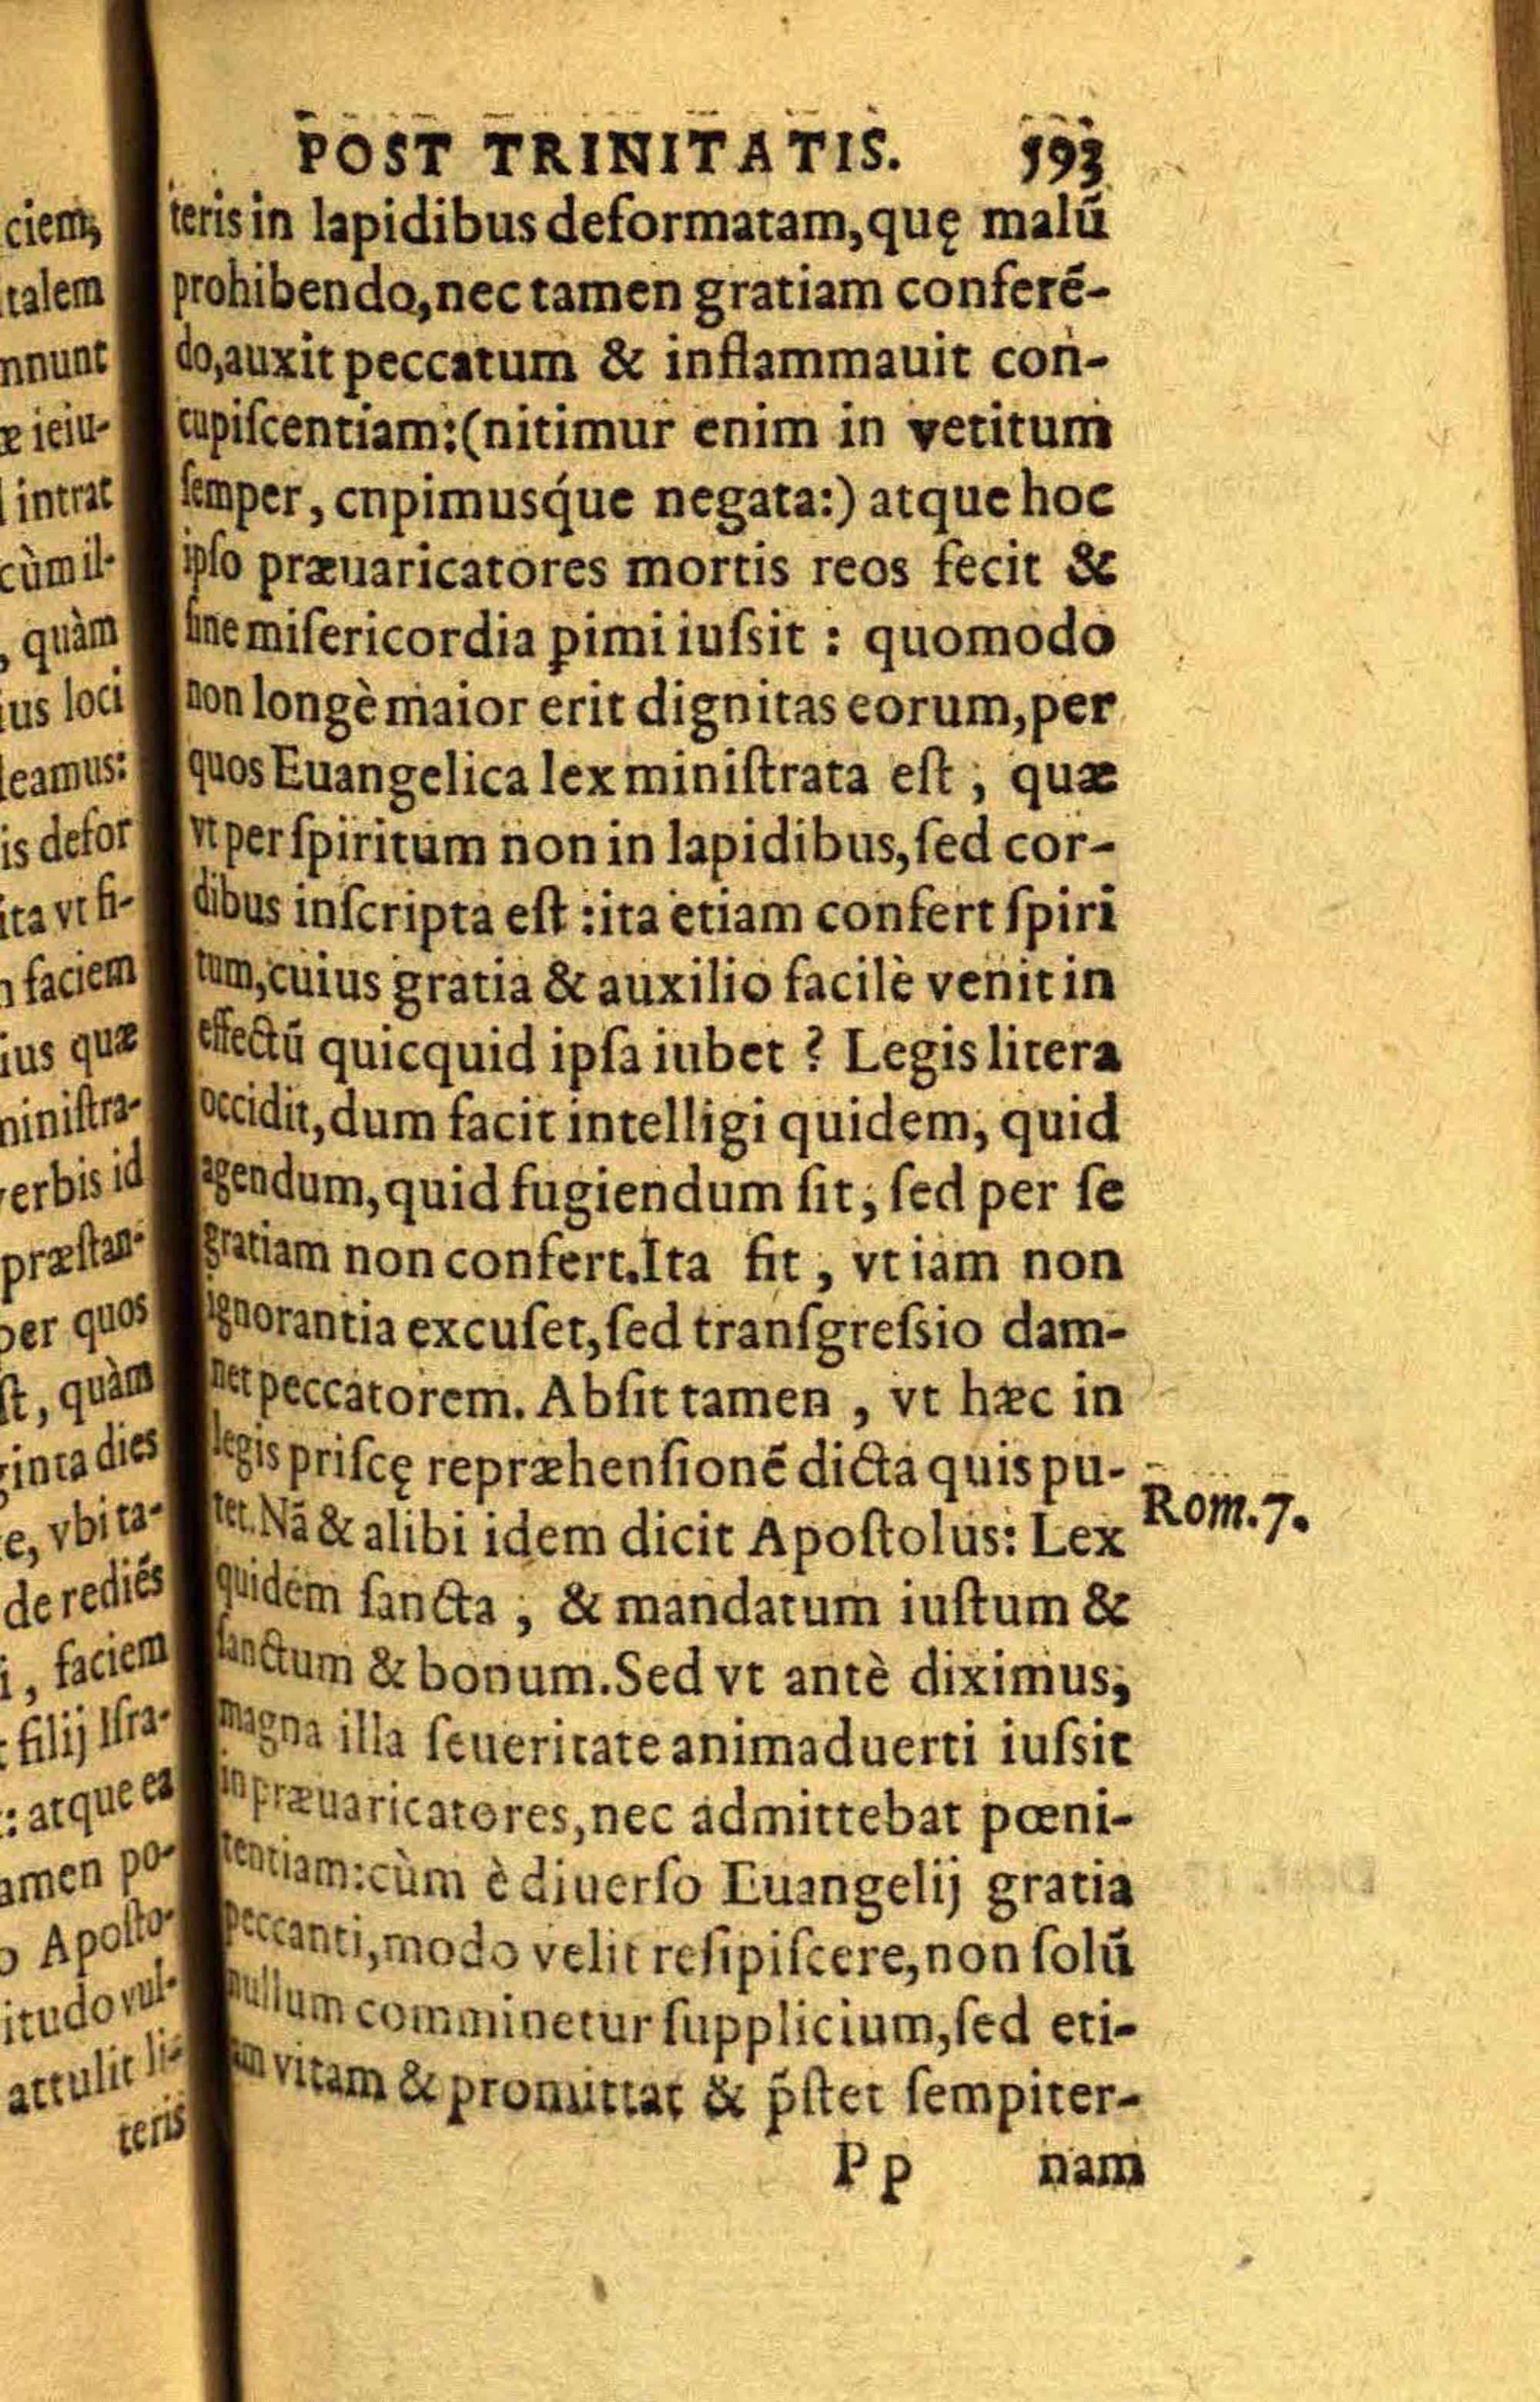 POST TRINITATIS. 593
teris in lapidibus deformatam, quę malū
prohibendo, nec tamen gratiam conferē-
do, auxit peccatum & inflammauit con-
cupiſcentiam: (nitimur enim in vetitum
ſemper, cnpimusq́ue negata:) atque hoc
ipſo præuaricatores mortis reos fecit &
ſine miſericordia ꝑimi iuſsit : quomodo
non longè maior erit dignitas eorum, per
quos Euangelica lex miniſtrata eſt, quæ
vt per ſpiritum non in lapidibus, ſed cor-
dibus inſcripta eſt : ita etiam confert ſpiri
tum, cuius gratia & auxilio facilè venit in
effectū quicquid ipſa iubet ? Legis litera
occidit, dum facit intelligi quidem, quid
agendum, quid fugiendum ſit, ſed per ſe
gratiam non confert. Ita fit, vt iam non
ignorantia excuſet, ſed tranſgreſsio dam-
net peccatorem. Abſit tamen, vt hæc in
legis priſcę repræhenſionē dicta quis pu-
tet. Nā & alibi idem dicit Apoſtolus: Lex
Rom. 7.
quidem ſancta, & mandatum iuſtum &
ſanctum & bonum. Sed vt antè diximus,
magna illa ſeueritate animaduerti iuſsit
in præuaricatores, nec admittebat pœni-
tentiam: cùm è diuerſo Euangelij gratia
peccanti, modo velit reſipiſcere, non ſolū
nullum comminetur ſupplicium, ſed eti-
am vitam & promittat & p̄ſtet ſempiter-
Pp nam
ciem,
talem
nnunt
æ ieiu-
intrat
cùm il-
, quàm
ius loci
leamus:
is defor
ita vt fi-
faciem
ius quæ
niniſtra-
verbis id
præſtan-
per quos
ſt, quàm
ginta dies
e, vbi ta-
de rediēs
i, faciem
filij Iſra-
: atque ea
amen po-
o Apoſto-
itudo vul-
attulit li-
teris